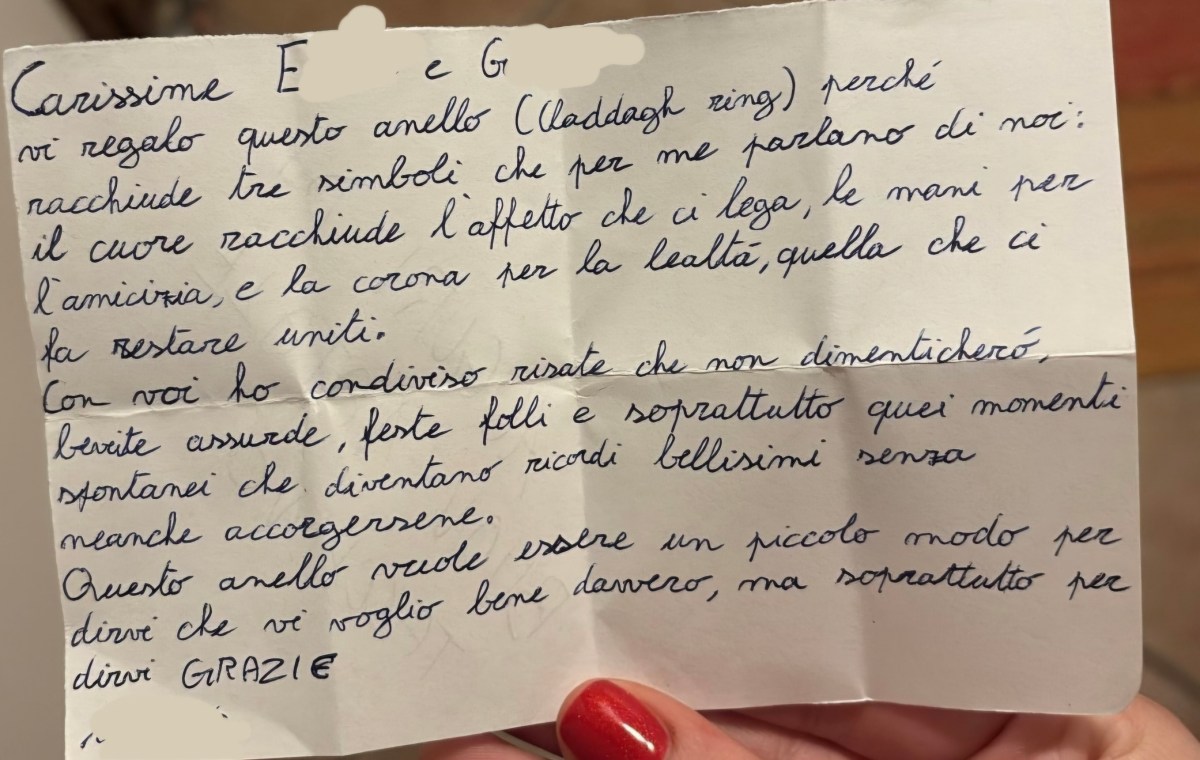 Carissime E e G
vi regalo questo anello (Claddagh ring) perché
racchiude tre simboli che per me parlano di noi:
il cuore racchiude l'affetto che ci lega, le mani per
l'amicizia, e la corona per la lealtà, quella che ci
fa restare uniti.
Con voi ho condiviso risate che non dimenticheró,
bevute assurde, feste folli e soprattutto quei momenti
spontanei che diventano ricordi bellisimi senza
neanche accorgersene.
Questo anello vuole essere un piccolo modo per
dirvi che vi voglio bene davvero, ma soprattutto per
dirvi GRAZIE